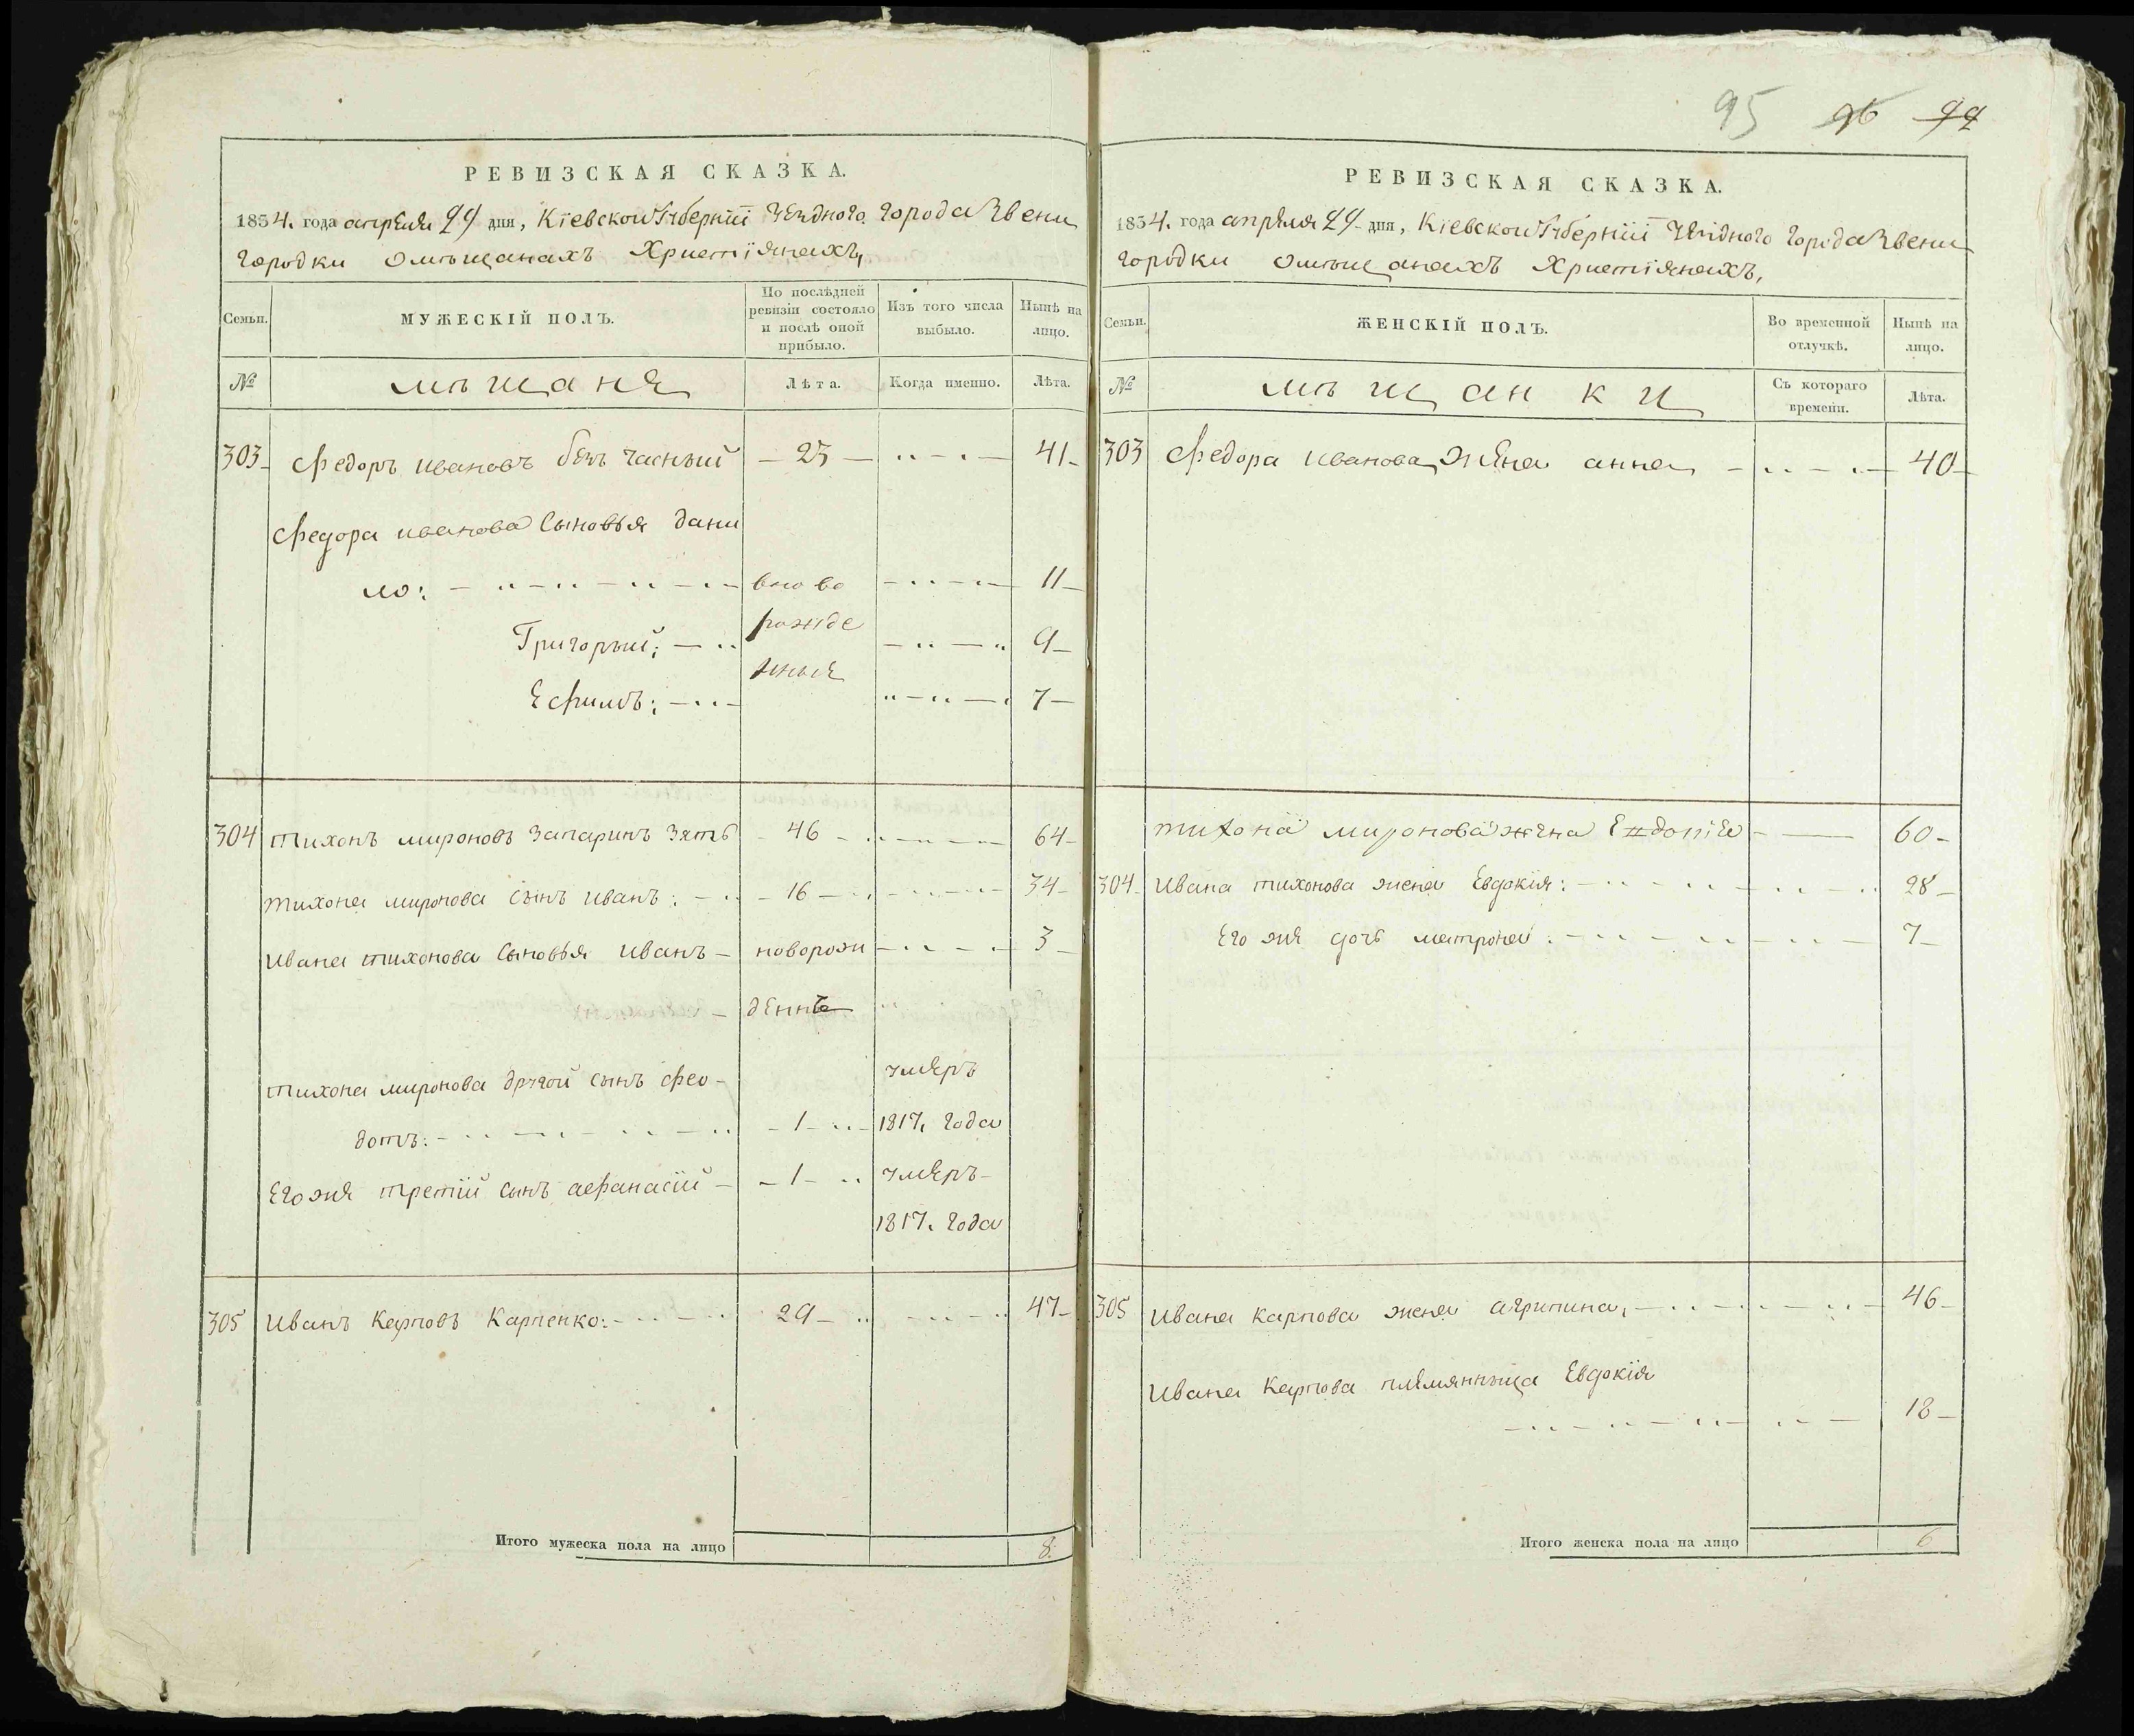 95 96 99
РЕВИЗСКАЯ СКАЗКА.
1834. года апреля 29 дня, Кіевской Губерніи Уезднаго города Звени
городки омѣщанахъ Христіянахъ,
Семьи.
МУЖЕСКІЙ ПОЛЪ.
По послѣдней
ревизіи состояло
и послѣ оной
прибыло.
Изъ того числа
выбыло.
Нынѣ на
лицо.
№
мѣщане
Лѣта.
Когда именно.
Лѣта.
303 Федоръ Ивановъ безчасный 23 41
Федора Иванова Сыновья Дани
ло: вново 11
рожде
Григорый: 9
нные
Ефимъ: 7
304 Тихонъ Мироновъ Запаринъ Зять 46 64
Тихона Миронова сынъ Иванъ: 16 34
Ивана Тихонова Сыновья Иванъ новорож 3
денне
Тихона Миронова другой сынъ Фео- умеръ
дотъ: 1 1817. года
Его же третій сынъ Афанасій 1 умеръ
1817. года
305 Иванъ Карповъ Карпенко: 29 47
Итого мужеска пола на лицо 8.
РЕВИЗСКАЯ СКАЗКА.
1834. года апреля 29 дня, Кіевской Губерніи Уезднаго города Звени
городки омѣщанахъ Христіянахъ,
Семьи.
ЖЕНСКІЙ ПОЛЪ.
Во временной
отлучкѣ.
Нынѣ на
лицо.
№
мѣщанки
Съ котораго
времени.
Лѣта.
303 Федора Иванова Жена анна 40
Тихона Миронова жена 60
304 Ивана Тихонова жена Евдокія: 28
Его же дочь матрона: 7
305 Ивана Карпова жена агрипина, 46
Ивана Карпова племянныца Евдокія
18
Итого женска пола на лицо 6